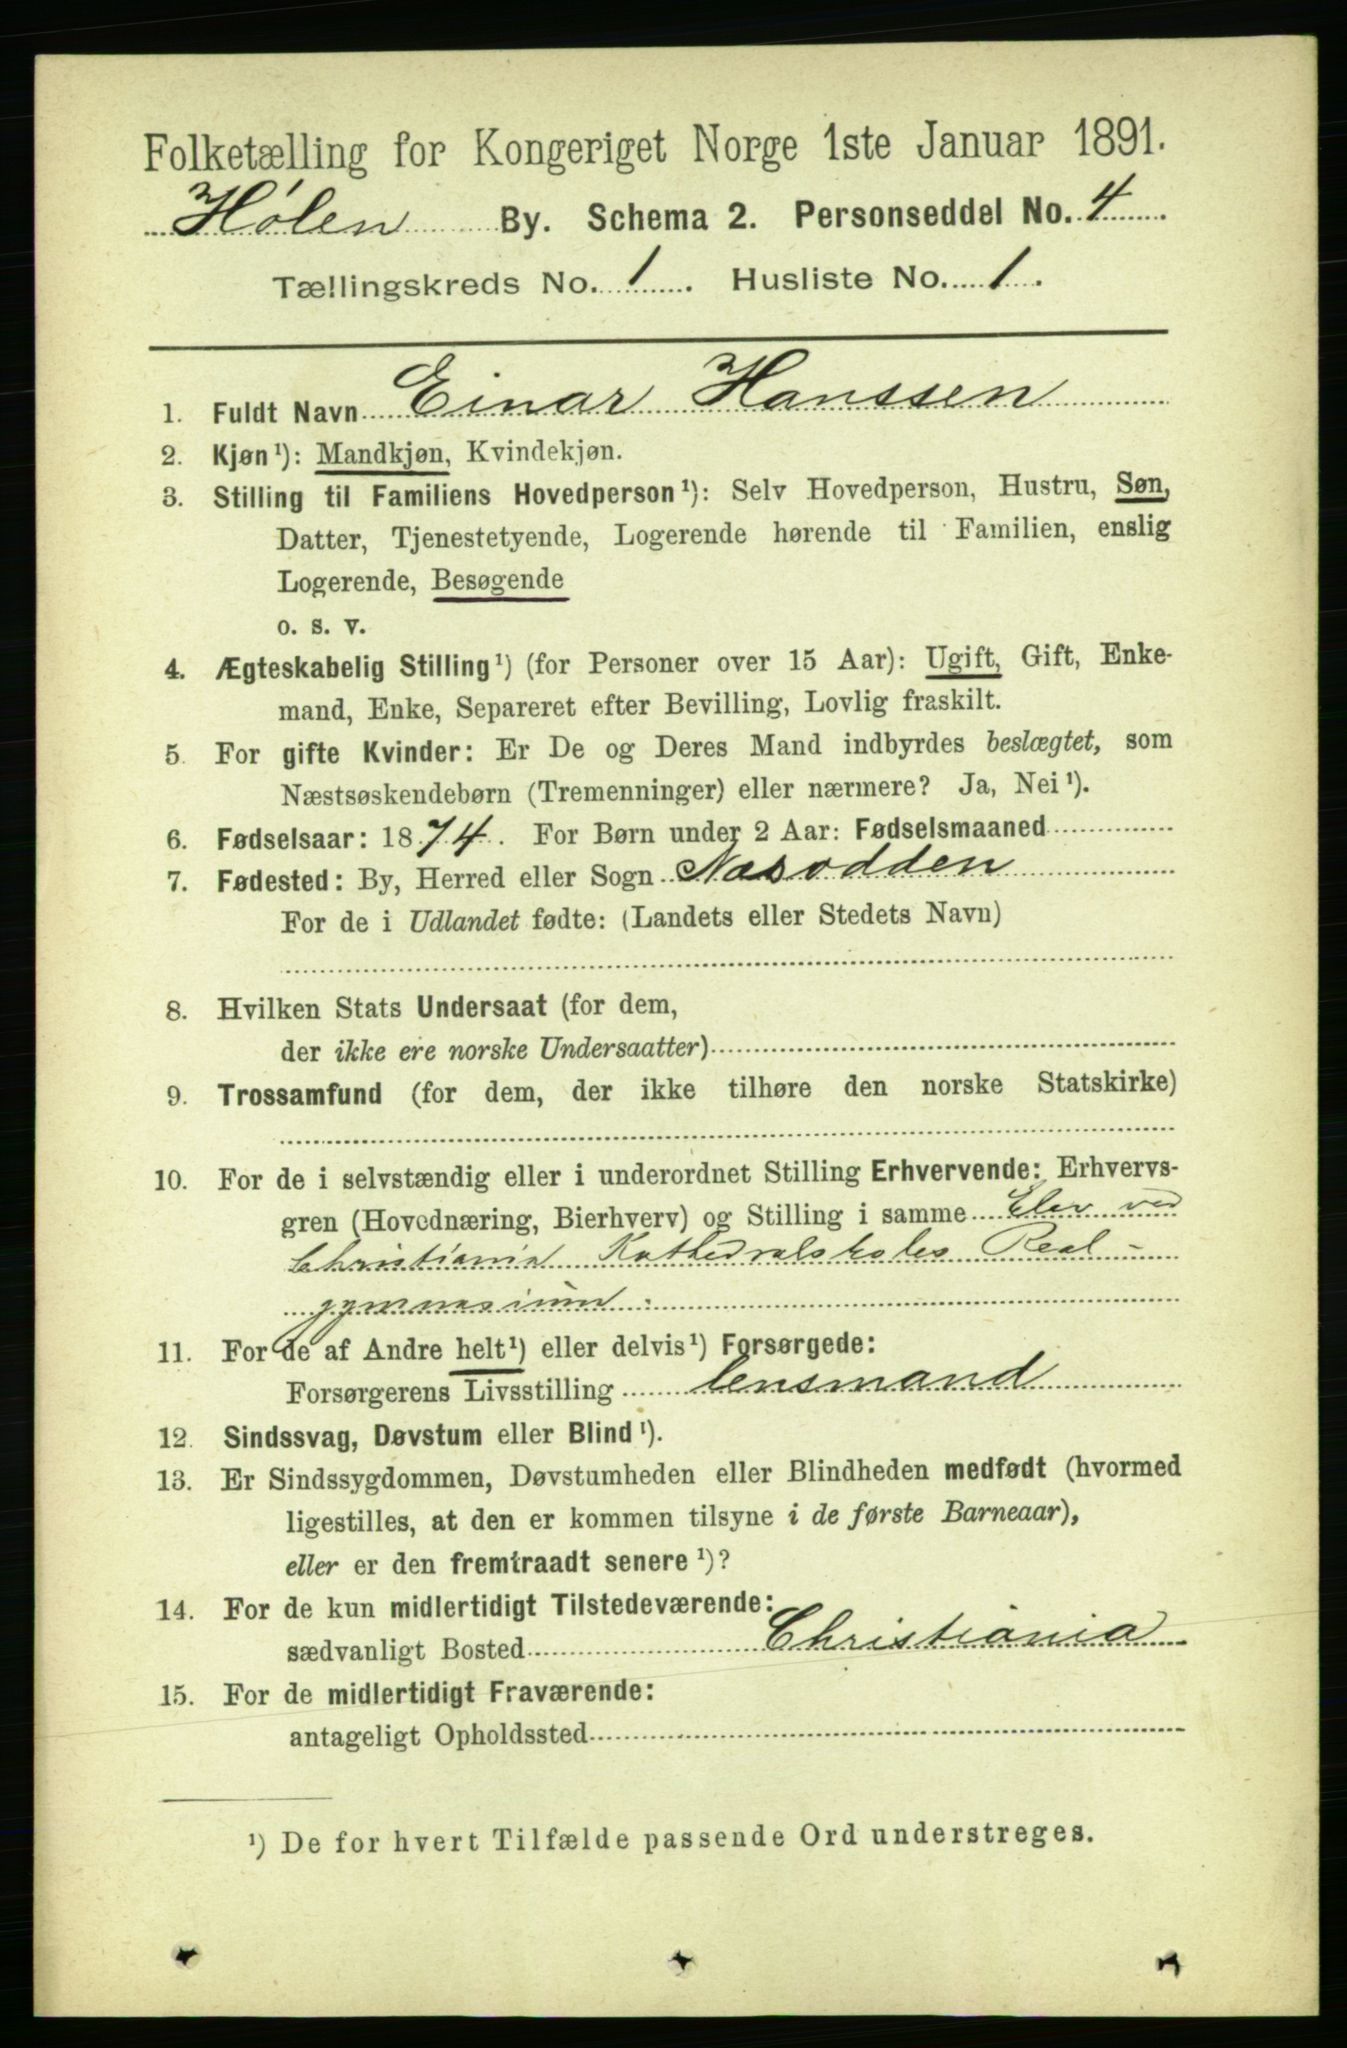 Folketælling for Kongeriget Norge 1ste Januar 1891.
Hølen By. Schema 2. Personseddel No. 4
Tællingskreds No. 1. Husliste No. 1.
1. Fuldt Navn Einar Hanssen
2. Kjøn¹): Mandkjøn, Kvindekjøn.
3. Stilling til Familiens Hovedperson¹): Selv Hovedperson, Hustru, Søn,
Datter, Tjenestetyende, Logerende hørende til Familien, enslig
Logerende, Besøgende
o. s. v.
4. Ægteskabelig Stilling¹) (for Personer over 15 Aar): Ugift, Gift, Enke-
mand, Enke, Separeret efter Bevilling, Lovlig fraskilt.
5. For gifte Kvinder: Er De og Deres Mand indbyrdes beslægtet, som
Næstsøskendebørn (Tremenninger) eller nærmere? Ja, Nei¹).
6. Fødselsaar: 1874. For Børn under 2 Aar: Fødselsmaaned
7. Fødested: By, Herred eller Sogn Næsodden
For de i Udlandet fødte: (Landets eller Stedets Navn)
8. Hvilken Stats Undersaat (for dem,
der ikke ere norske Undersaatter)
9. Trossamfund (for dem, der ikke tilhøre den norske Statskirke)
10. For de i selvstændig eller i underordnet Stilling Erhvervende: Erhvervs-
gren (Hovednæring, Bierhverv) og Stilling i samme Elev ved
Christiania Kathedralskoles Real-
gymnasium.
11. For de af Andre helt¹) eller delvis¹) Forsørgede:
Forsørgerens Livsstilling lensmand
12. Sindssvag, Døvstum eller Blind¹).
13. Er Sindssygdommen, Døvstumheden eller Blindheden medfødt (hvormed
ligestilles, at den er kommen tilsyne i de første Barneaar),
eller er den fremtraadt senere¹)?
14. For de kun midlertidigt Tilstedeværende:
sædvanligt Bosted Christiania
15. For de midlertidigt Fraværende:
antageligt Opholdssted
¹) De for hvert Tilfælde passende Ord understreges.